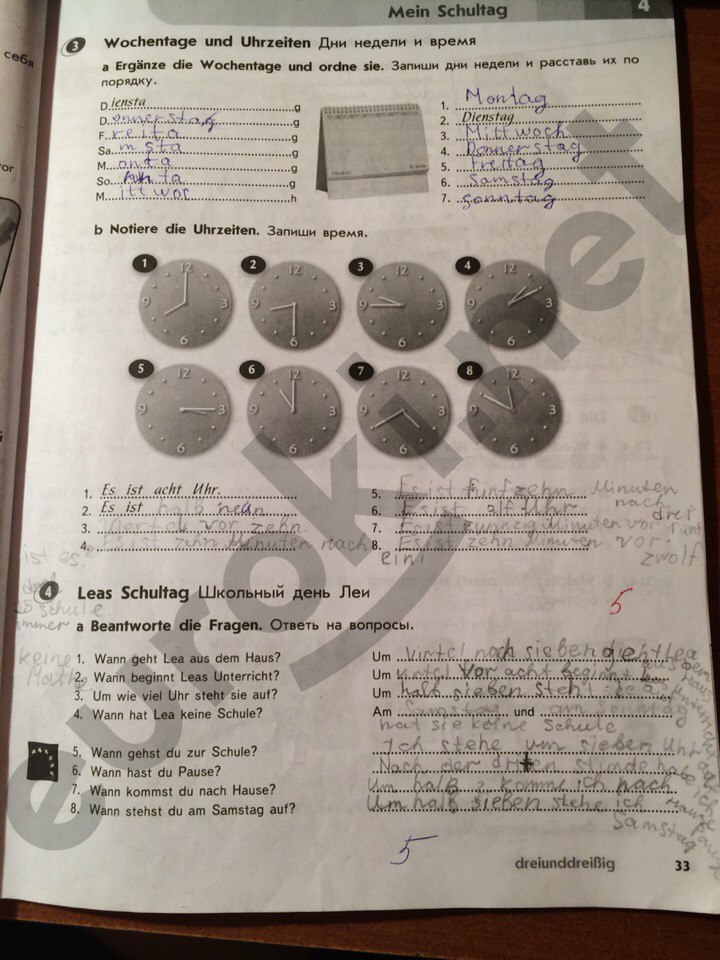 Mein Schultag
4
себя
3 Wochentage und Uhrzeiten Дни недели и время
a Ergänze die Wochentage und ordne sie. Запиши дни недели и расставь их по
порядку.
D.iensta............g
D.onnerstag............g
F.reita............g
Sa.msta............g
M.onta............g
So.nnta............g
M.ittwoc............h
1. Montag
2. Dienstag
3. Mittwoch
4. Donnerstag
5. freitag
6. Samstag
7. sonntag
b Notiere die Uhrzeiten. Запиши время.
1 2 3 4
12 3 6 9
5 6 7 8
1. Es ist acht Uhr.
2. Es ist halb neun
3. Viertal vor zehn
4. Es ist zehn Minuten nach eini
5. Es ist fünfzehn Minuten nach drei
6. Es ist alf Uhr
7. Es ist zwanzig Minuten vor fünf
8. Es ist zehn Minuten vor zwolf
5
4 Leas Schultag Школьный день Леи
a Beantworte die Fragen. Ответь на вопросы.
1. Wann geht Lea aus dem Haus?
2. Wann beginnt Leas Unterricht?
3. Um wie viel Uhr steht sie auf?
4. Wann hat Lea keine Schule?
5. Wann gehst du zur Schule?
6. Wann hast du Pause?
7. Wann kommst du nach Hause?
8. Wann stehst du am Samstag auf?
Um virtel nach sieben geht Lea
Um virtel vor acht beginnt
Um halb sieben steht
Am Samstag und am Sonntag
hat sie keine Schule
Ich stehe um sieben Uhr
Nach der dritten stunde habe
Um halb 2 komme ich nach
Um halb sieben stehe ich
Samstag
keine
Mathe
Schule
5
dreiunddreißig
33
eurokinet